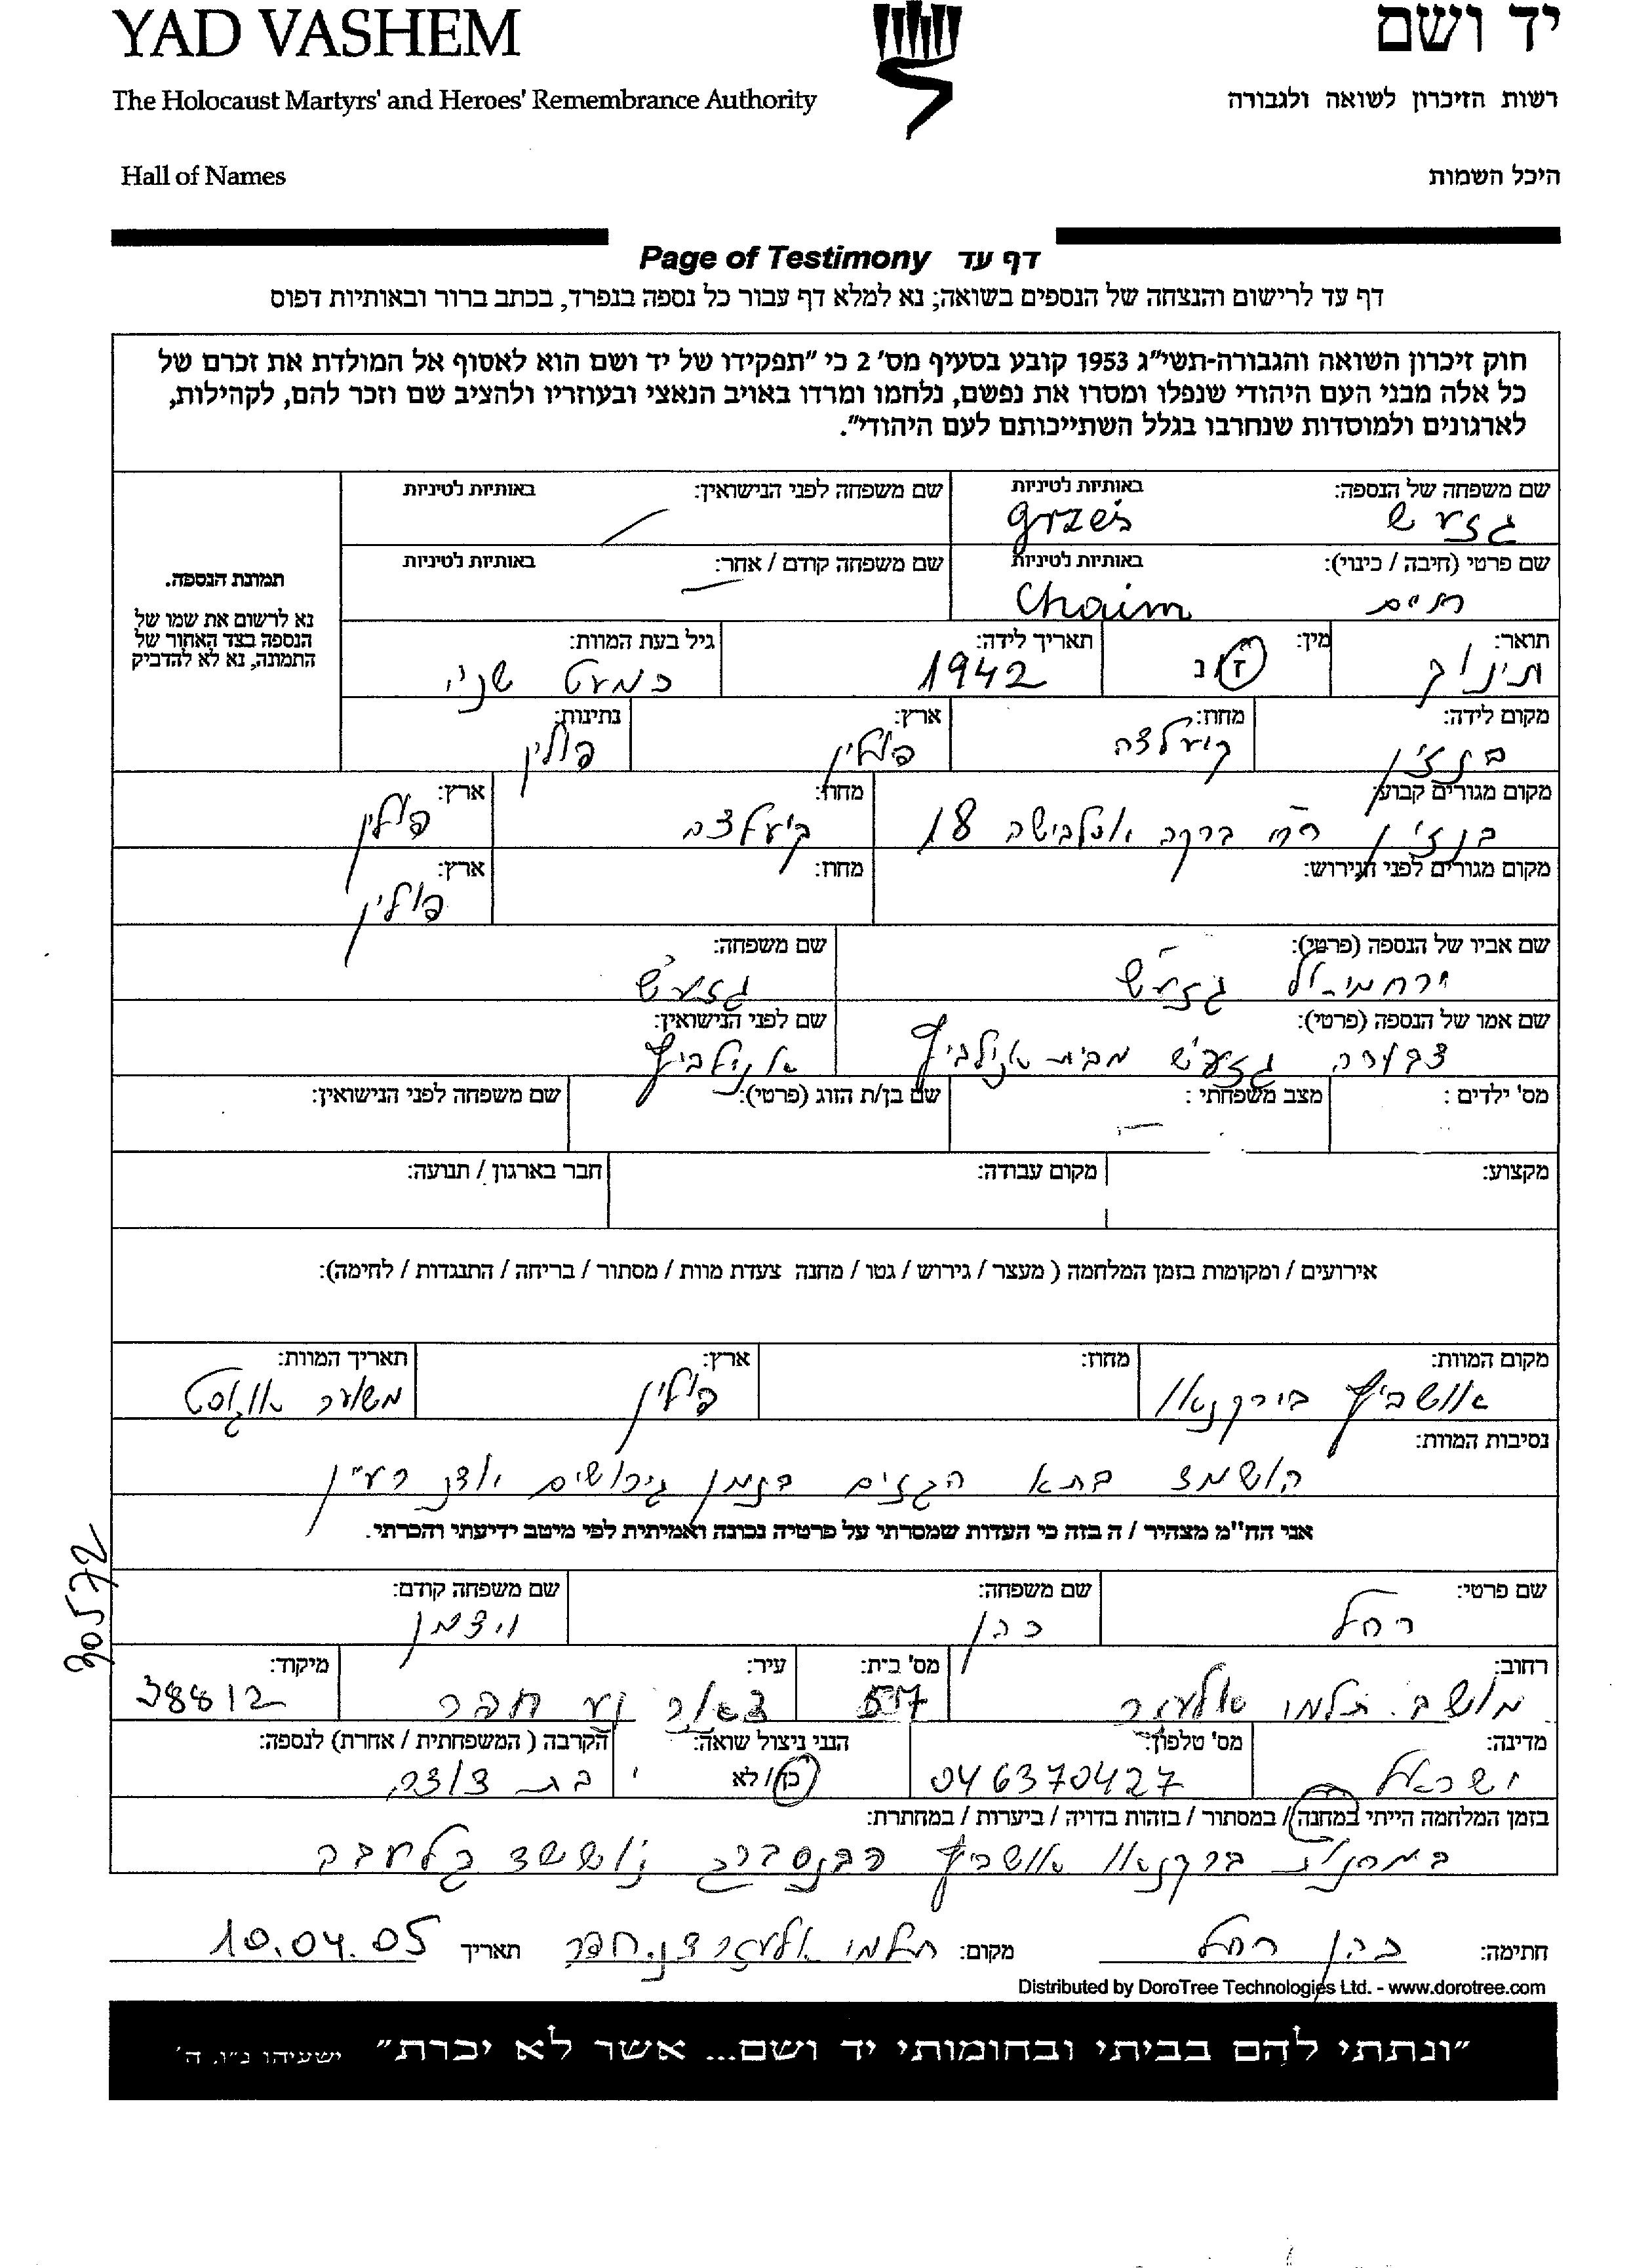 YAD VASHEM
יד ושם
The Holocaust Martyrs' and Heroes' Remembrance Authority
רשות הזיכרון לשואה ולגבורה
Hall of Names
היכל השמות
Page of Testimony דף עד
דף עד לרישום והנצחה של הנספים בשואה; נא למלא דף עבור כל נספה בנפרד, בכתב ברור ובאותיות דפוס
חוק זיכרון השואה והגבורה-תשי"ג 1953 קובע בסעיף מס' 2 כי "תפקידו של יד ושם הוא לאסוף אל המולדת את זכרם של
כל אלה מבני העם היהודי שנפלו ומסרו את נפשם, נלחמו ומרדו באויב הנאצי ובעוזריו ולהציב שם וזכר להם, לקהילות,
לארגונים ולמוסדות שנחרבו בגלל השתייכותם לעם היהודי".
שם משפחה של הנספה: באותיות לטיניות שם משפחה לפני הנישואין: באותיות לטיניות
גזעש grzés
שם פרטי (חיבה / כינוי): באותיות לטיניות שם משפחה קודם / אחר: באותיות לטיניות
חיים Chaim
תמונת הנספה.
נא לרשום את שמו של
הנספה בצד האחור של
התמונה, נא לא להדביק
תואר: מין: תאריך לידה: גיל בעת המוות:
תינוק ז / נ 1942 כמעט שנה
מקום לידה: מחוז: ארץ: נתינות:
בנזין קיעלצה פולין פולין
מקום מגורים קבוע: מחוז: ארץ:
בנזין 18 קיעלצה פולין
מקום מגורים לפני הגירוש: מחוז: ארץ:
פולין
שם אביו של הנספה (פרטי): שם משפחה:
ירחמיאל גזעש גזעש
שם אמו של הנספה (פרטי): שם לפני הנישואין:
גזעש מבית
מס' ילדים : מצב משפחתי : שם בן/ת הזוג (פרטי): שם משפחה לפני הנישואין:
מקצוע: מקום עבודה: חבר בארגון / תנועה:
אירועים / ומקומות בזמן המלחמה ( מעצר / גירוש / גטו / מחנה צעדת מוות / מסתור / בריחה / התנגדות / לחימה):
מקום המוות: מחוז: ארץ: תאריך המוות:
אושביץ בירקנאו פולין משוער אוגוסט
נסיבות המוות:
הושמד בתא הגזים בזמן גירושים יודן ריין
אני הח"מ מצהיר / ה בזה כי העדות שמסרתי על פרטיה נכונה ואמיתית לפי מיטב ידיעתי והכרתי.
30572
שם פרטי: שם משפחה: שם משפחה קודם:
רחל כהן ויצמן
רחוב: מס' בית: עיר: מיקוד:
מושב תלמי אלעזר 57 חפר 38812
מדינה: מס' טלפון: הנני ניצול שואה: הקרבה ( המשפחתית / אחרת) לנספה:
ישראל 046370427 כן / לא בת דודה
בזמן המלחמה הייתי במחנה / במסתור / בזהות בדויה / ביערות / במחתרת:
במחנות ברקנאו אושביץ
חתימה: כהן רחל מקום: תלמי אלעזר ד.נ. חפר תאריך 10.04.05
Distributed by DoroTree Technologies Ltd. - www.dorotree.com
"ונתתי להם בביתי ובחומותי יד ושם... אשר לא יכרת" ישעיהו נ"ו, ה'